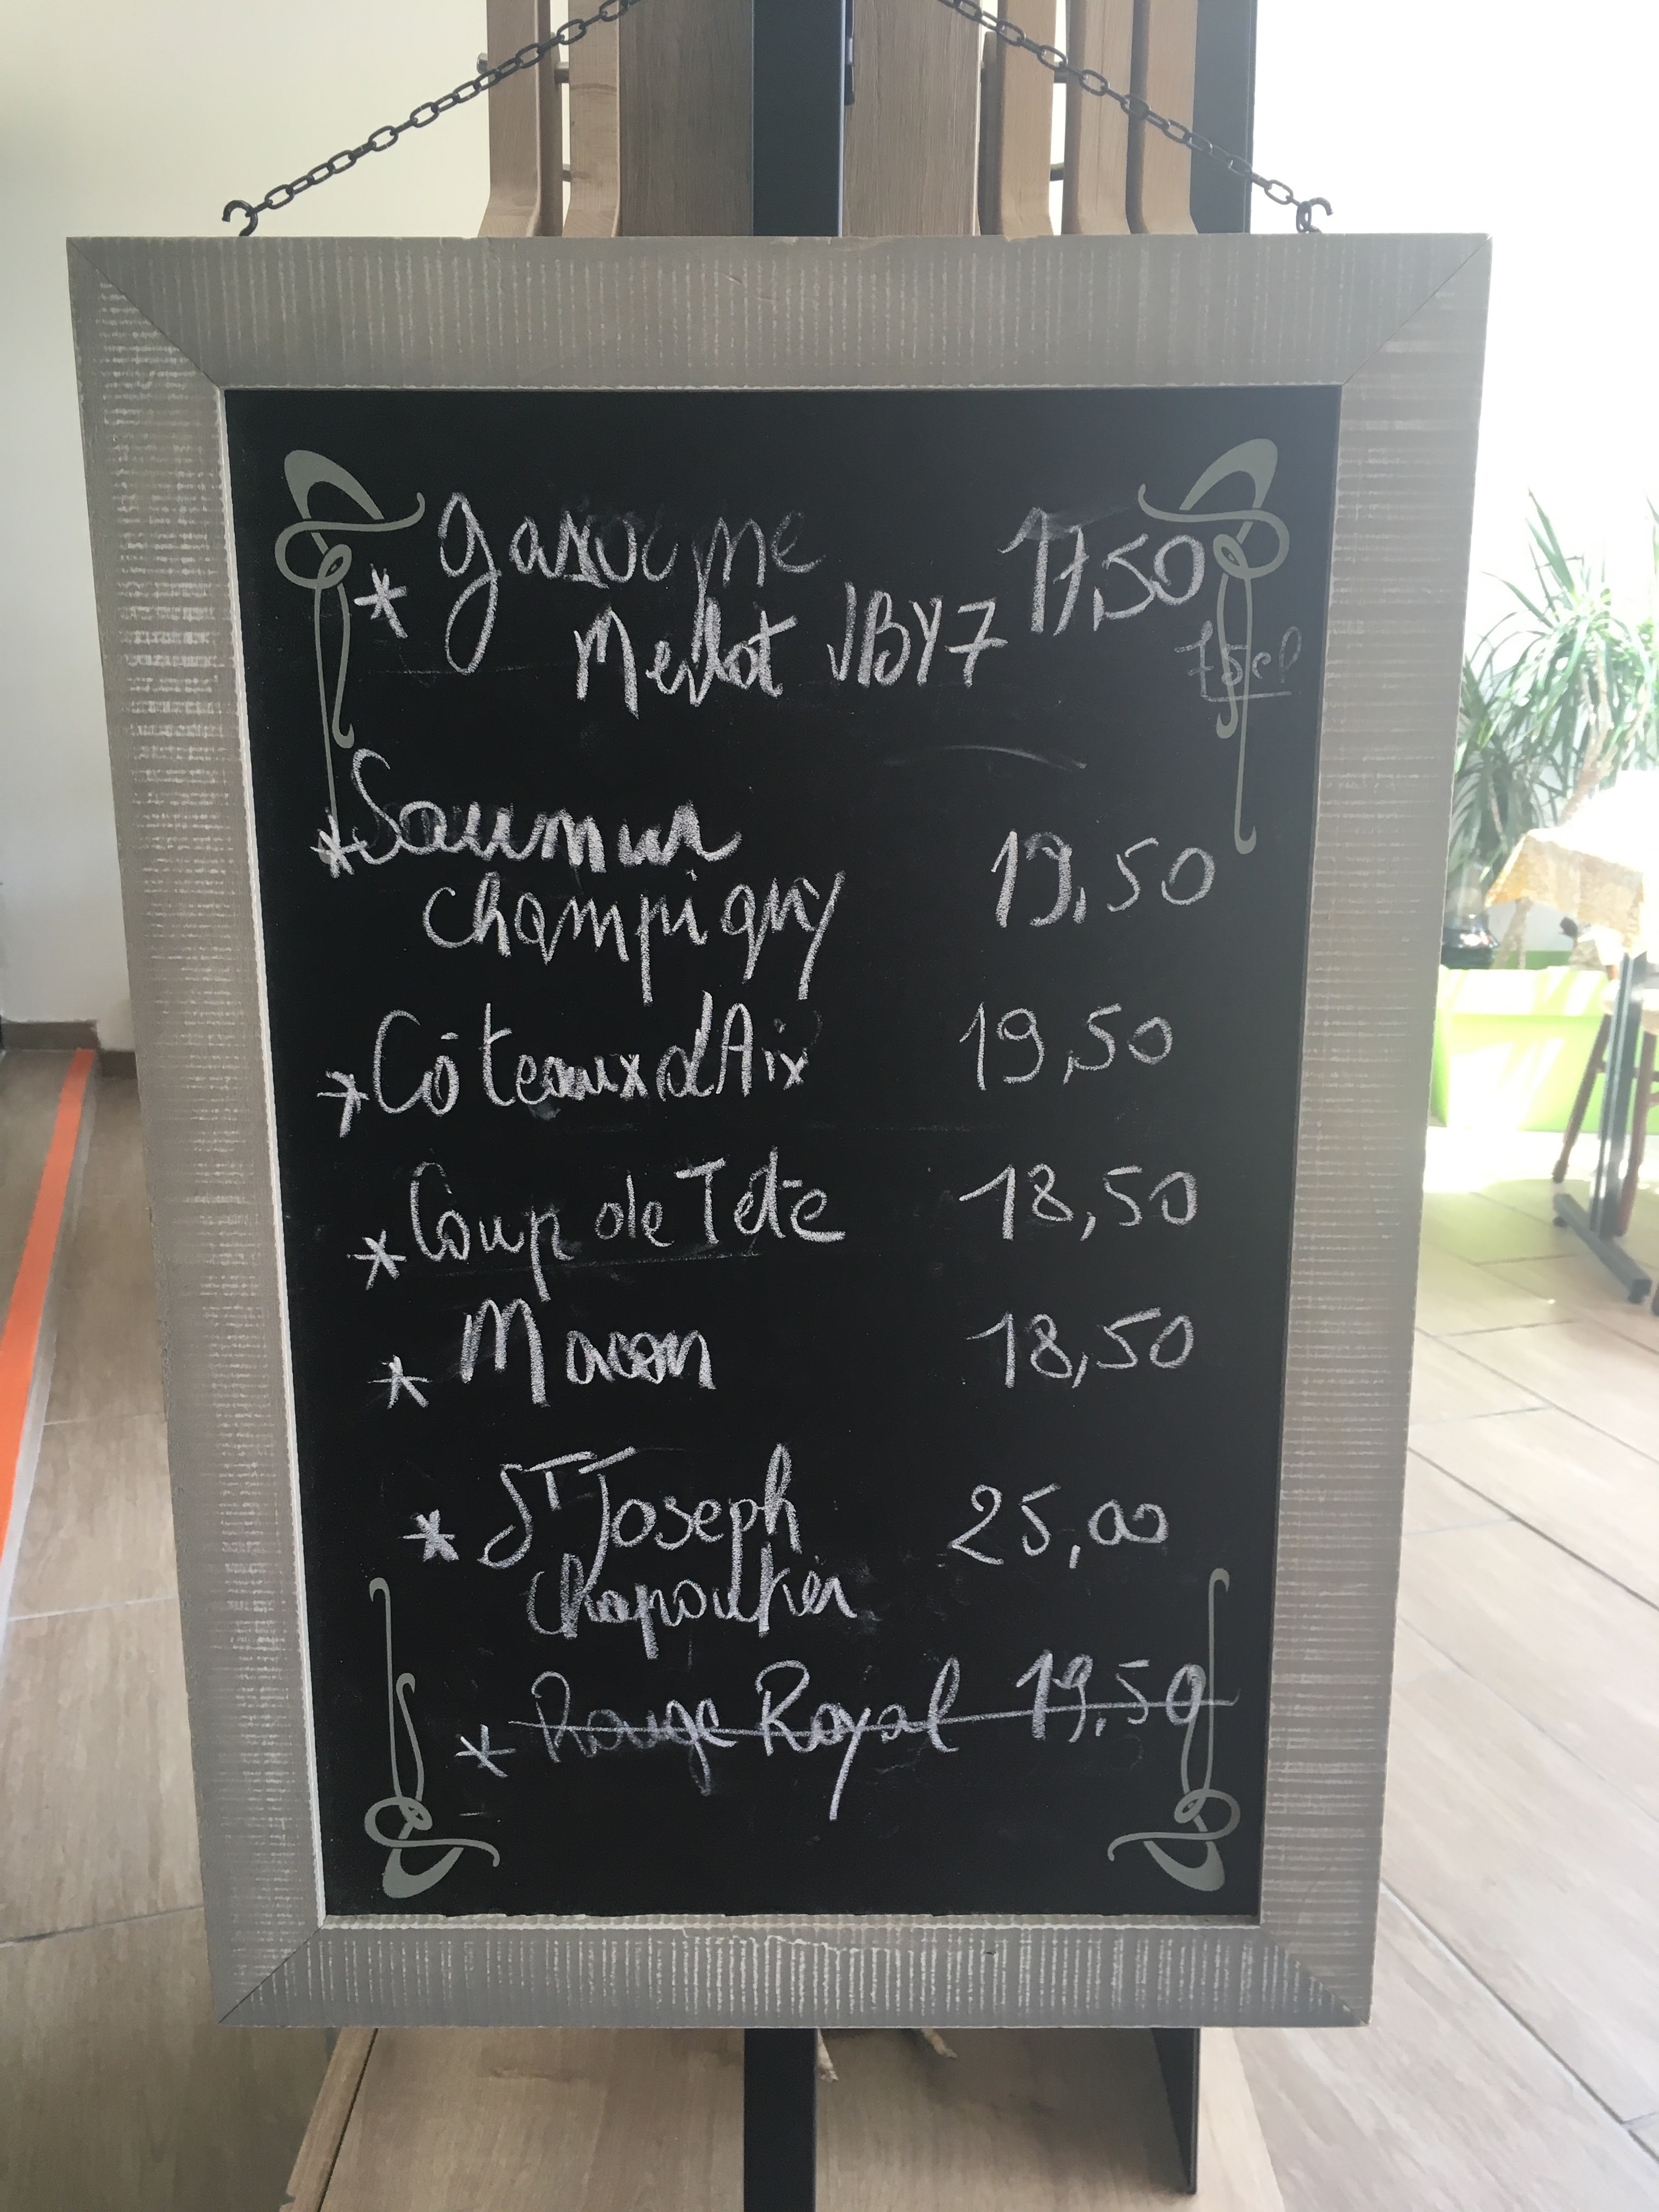 gascogne 17,50
* Merlot JBY7 75cl
*Saumur
champigny 19,50
*Côteaux d'Aix 19,50
*Coup de Tête 18,50
* Macon 18,50
* ST Joseph 25,00
chapoutier
* Rouge Royal 19,50